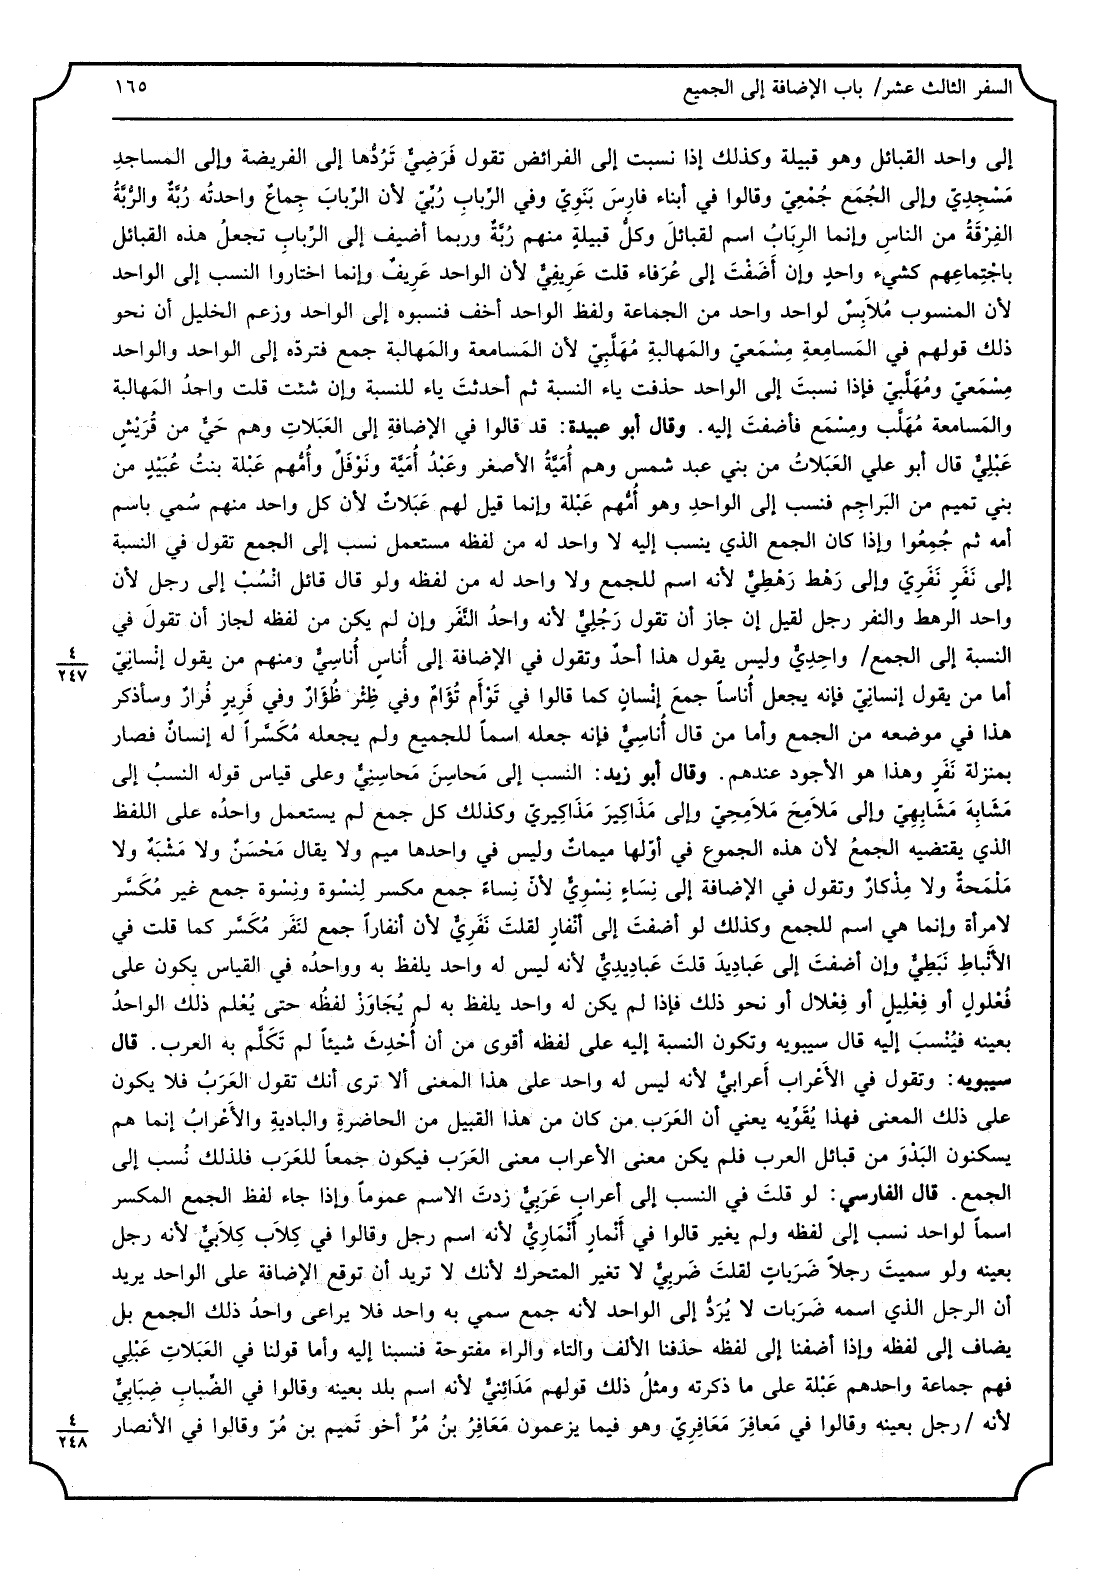 السفر الثالث عشر/ باب الإضافة إلى الجميع ١٦٥
إلى واحد القبائل وهو قبيلة وكذلك إذا نسبت إلى الفرائض تقول فَرَضِيٌّ تَرُدُّها إلى الفريضة وإلى المساجدِ
مَسْجِدِيّ وإلى الجُمَع جُمْعِيّ وقالوا في أبناء فارِسَ بَنَوِيّ وفي الرِّبابِ رُبِّيّ لأن الرِّبابَ جِماعٌ واحدتُه رُبَّةٌ والرُّبَّةُ
الفِرْقَةُ من الناسِ وإنما الرِبَابُ اسم لقبائلَ وكلُّ قبيلةٍ منهم رُبَّةٌ وربما أضيف إلى الرِّبابِ تجعلُ هذه القبائل
باجْتِماعِهم كشيء واحدٍ وإن أَضَفْتَ إلى عُرَفاء قلت عَرِيفِيٌّ لأن الواحد عَرِيفٌ وإنما اختاروا النسب إلى الواحد
لأن المنسوب مُلاَبِسٌ لواحد واحد من الجماعة ولفظ الواحد أخف فنسبوه إلى الواحد وزعم الخليل أن نحو
ذلك قولهم في المَسامِعةِ مِسْمَعيّ والمَهالبةِ مُهَلَّبِيّ لأن المَسامعة والمَهالبة جمع فتردّه إلى الواحد والواحد
مِسْمَعيّ ومُهَلَّبيّ فإذا نسبتَ إلى الواحد حذفت ياء النسبة ثم أحدثتَ ياء للنسبة وإن شئت قلت واحِدُ المَهالبة
والمَسامعة مُهَلَّب ومِسْمَع فأضفتَ إليه. وقال أبو عبيدة: قد قالوا في الإضافةِ إلى العَبَلاتِ وهم حَيٌّ من قُرَيْشٍ
عَبْلِيٌّ قال أبو علي العَبَلاتُ من بني عبد شمس وهم أُمَيَّةُ الأصغر وعَبْدُ أُمَيَّة ونَوْفَلٌ وأُمُّهم عَبْلة بنتُ عُبَيْدٍ من
بني تميم من البَراجِم فنسب إلى الواحدِ وهو أُمُّهم عَبْلة وإنما قيل لهم عَبَلاتٌ لأن كل واحد منهم سُمي باسم
أمه ثم جُمِعُوا وإذا كان الجمع الذي ينسب إليه لا واحد له من لفظه مستعمل نسب إلى الجمع تقول في النسبة
إلى نَفَرٍ نَفَرِيّ وإلى رَهْط رَهْطِيٌّ لأنه اسم للجمع ولا واحد له من لفظه ولو قال قائل انْسُبْ إلى رجل لأن
واحد الرهط والنفر رجل لقيل إن جاز أن تقول رَجُلِيٌّ لأنه واحدُ النَّفَر وإن لم يكن من لفظه لجاز أن تقولَ في
النسبة إلى الجمع/ واحِدِيٌّ وليس يقول هذا أحدٌ وتقول في الإضافة إلى أُناسٍ أُناسِيٌّ ومنهم من يقول إنْسانِيّ
٤
٢٤٧
أما من يقول إنسانِيّ فإنه يجعل أُناساً جمعَ إنْسانٍ كما قالوا في تَوْأَم تُؤَامٌ وفي ظِئْر ظُؤَارٌ وفي فَرِيرٍ فُرارٌ وسأذكر
هذا في موضعه من الجمع وأما من قال أُناسِيٌّ فإنه جعله اسماً للجميع ولم يجعله مُكَسَّراً له إنسانٌ فصار
بمنزلة نَفَرٍ وهذا هو الأجود عندهم. وقال أبو زيد: النسب إلى مَحاسِنَ مَحاسِنِيٌّ وعلى قياس قوله النسبُ إلى
مَشَابِهَ مَشَابِهِيّ وإلى مَلاَمِحَ مَلاَمِحِيّ وإلى مَذَاكِيرَ مَذَاكِيريّ وكذلك كل جمع لم يستعمل واحدُه على اللفظ
الذي يقتضيه الجمعُ لأن هذه الجموع في أوّلها ميماتٌ وليس في واحدها ميم ولا يقال مَحْسَنٌ ولا مَشْبَهٌ ولا
مَلْمَحةٌ ولا مِذْكارٌ وتقول في الإضافة إلى نِسَاءٍ نِسْوِيٌّ لأنّ نِساءً جمع مكسر لِنسْوة ونِسْوة جمع غير مُكَسَّر
لامرأة وإنما هي اسم للجمع وكذلك لو أضفتَ إلى أنْفارٍ لقلتَ نَفَرِيٌّ لأن أنفاراً جمع لنَفَر مُكَسَّر كما قلت في
الأَنْباطِ نَبَطِيٌّ وإن أضفتَ إلى عَبادِيدَ قلتَ عَبادِيدِيٌّ لأنه ليس له واحد يلفظ به وواحدُه في القياس يكون على
فُعْلولٍ أو فِعْلِيلٍ أو فِعْلال أو نحو ذلك فإذا لم يكن له واحد يلفظ به لم يُجَاوَزْ لفظُه حتى يُعْلم ذلك الواحدُ
بعينه فيُنْسبَ إليه قال سيبويه وتكون النسبة إليه على لفظه أقوى من أن أُحْدِثَ شيئاً لم تَكَلَّم به العرب. قال
سيبويه: وتقول في الأَعْراب أَعرابيٌّ لأنه ليس له واحد على هذا المعنى ألا ترى أنك تقول العَرَبُ فلا يكون
على ذلك المعنى فهذا يُقَوِّيه يعني أن العَرَب من كان من هذا القبيل من الحاضرةِ والباديةِ والأَعْرابُ إنما هم
يسكنون البَدْوَ من قبائل العرب فلم يكن معنى الأعراب معنى العَرَب فيكون جمعاً للعَرَب فلذلك نُسب إلى
الجمع. قال الفارسي: لو قلتَ في النسب إلى أعرابٍ عَرَبِيٌّ زدتَ الاسم عموماً وإذا جاء لفظ الجمع المكسر
اسماً لواحد نسب إلى لفظه ولم يغير قالوا في أَنْمارٍ أَنْمَارِيٌّ لأنه اسم رجل وقالوا في كِلاَب كِلاَبيٌّ لأنه رجل
بعينه ولو سميتَ رجلاً ضَرَباتٍ لقلتَ ضَربِيٌّ لا تغير المتحرك لأنك لا تريد أن توقع الإضافة على الواحد يريد
أن الرجل الذي اسمه ضَرَبات لا يُرَدُّ إلى الواحد لأنه جمع سمي به واحد فلا يراعى واحدُ ذلك الجمع بل
يضاف إلى لفظه وإذا أضفنا إلى لفظه حذفنا الألف والتاء والراء مفتوحة فنسبنا إليه وأما قولنا في العَبَلاتِ عَبْلِي
فهم جماعة واحدهم عَبْلة على ما ذكرته ومثلُ ذلك قولهم مَدَائِنيٌّ لأنه اسم بلد بعينه وقالوا في الضِّبابِ ضِبَابِيٌّ
لأنه /رجل بعينه وقالوا في مَعافِرَ مَعَافِرِيّ وهو فيما يزعمون مَعَافِرُ بنُ مُرٍّ أخو تَميم بن مُرّ وقالوا في الأنصار
٤
٢٤٨